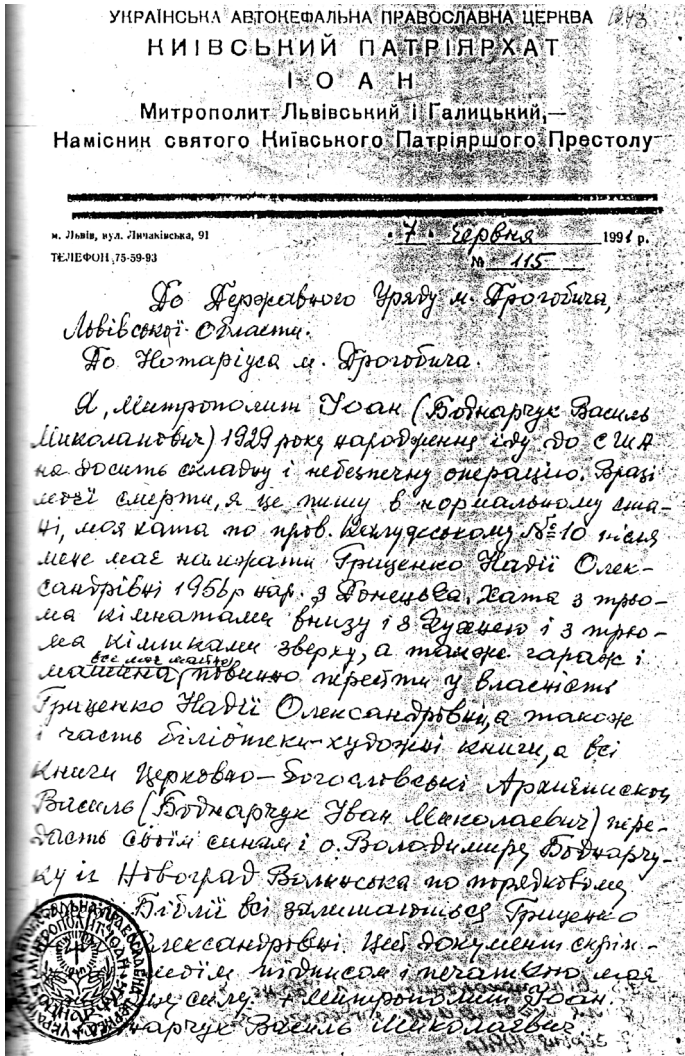 УКРАЇНСЬКА АВТОКЕФАЛЬНА ПРАВОСЛАВНА ЦЕРКВА
КИЇВСЬКИЙ ПАТРІЯРХАТ
ІОАН
Митрополит Львівський і Галицький,—
Намісник святого Київського Патріяршого Престолу
м. Львів, вул. Личаківська, 91
„ 7 „ червня 1991 р.
ТЕЛЕФОН 75-59-93
№ 115
До Державного Уряду м. Дрогобича,
Львівської Области.
До Нотаріуса м. Дрогобича.
Я, Митрополит Іоан (Боднарчук Василь
Миколаиович) 1929 року народження їду до США
на досить складну і небезпечну операцію. Вразі
моєї смерти, я це пишу в нормальному ста-
ні, моя хата по пров. №10 після
мене має належати Гриценко Надії Олек-
сандрівні 1956р нар. з Донецька. Хата з трьо-
ма кімнатами внизу і з кухнею і з трьо-
ма кімнтками зверху, а також гараж і
всі моє майно
машина, повинно перейти у власність
Гриценко Надії Олександрівни, а також
і часть бібліотеки-художні книги, а всі
книги Церковно-Богословські Архиєпископ
Василь (Боднарчук Іван Миколаєвич) пере-
дасть своїм синам і о. Володимиру Боднарчу-
ку із Новоград Волинська по порядковому
Біблії всі залишаються Гриценко
Олександрівні. Цей документ скріп-
моїм підписом і печаткою має
силу. + Митрополит Іоан.
Боднарчук Василь Миколаєвич